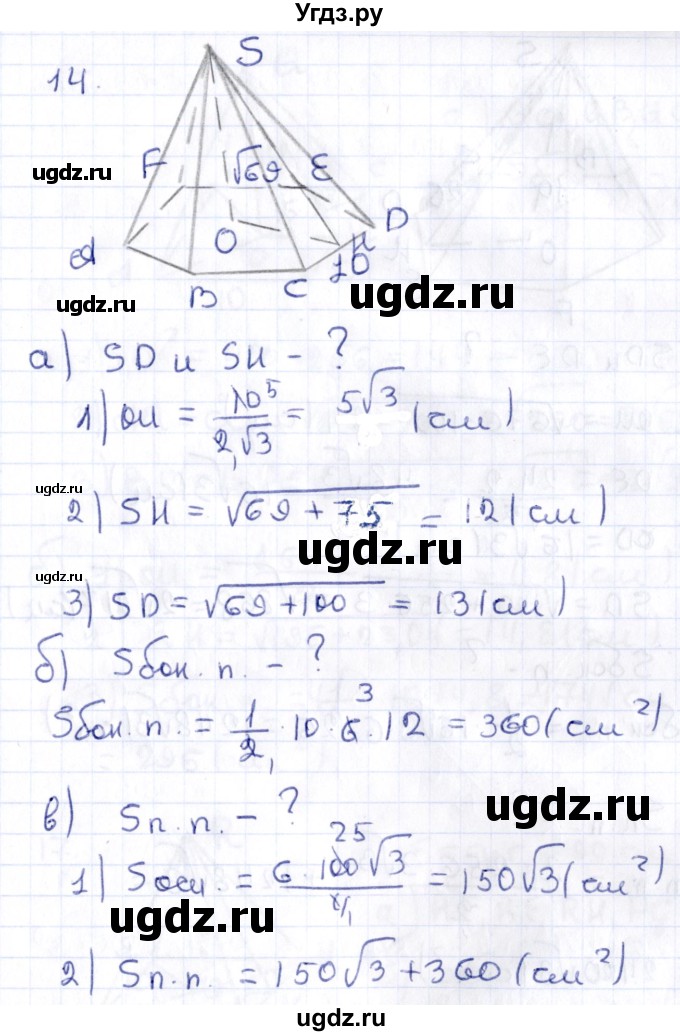 Угдз.ру
14.
S
F
√69
E
D
A
O
H
10
B
C
ugdz.ru
ugdz.ru
ugdz.ru
а) SD и SH - ?
1) OH = 10 5 / 2√3 = 5√3 (см)
ugdz.ru
2) SH = √69+75 = 12(см)
ugdz.ru
ugdz.ru
3) SD = √69+100 = 13(см)
б) Sбок. п. - ?
Sбок. п. = 1/2 · 10 · 6 3 · 12 = 360(см²)
1
ugdz.ru
в) Sп.п. - ?
1) Sосн. = 6 · 100 25 √3 / 4 1 = 150√3(см²)
ugdz.ru
2) Sп.п. = 150√3+360(см²)
ugdz.ru